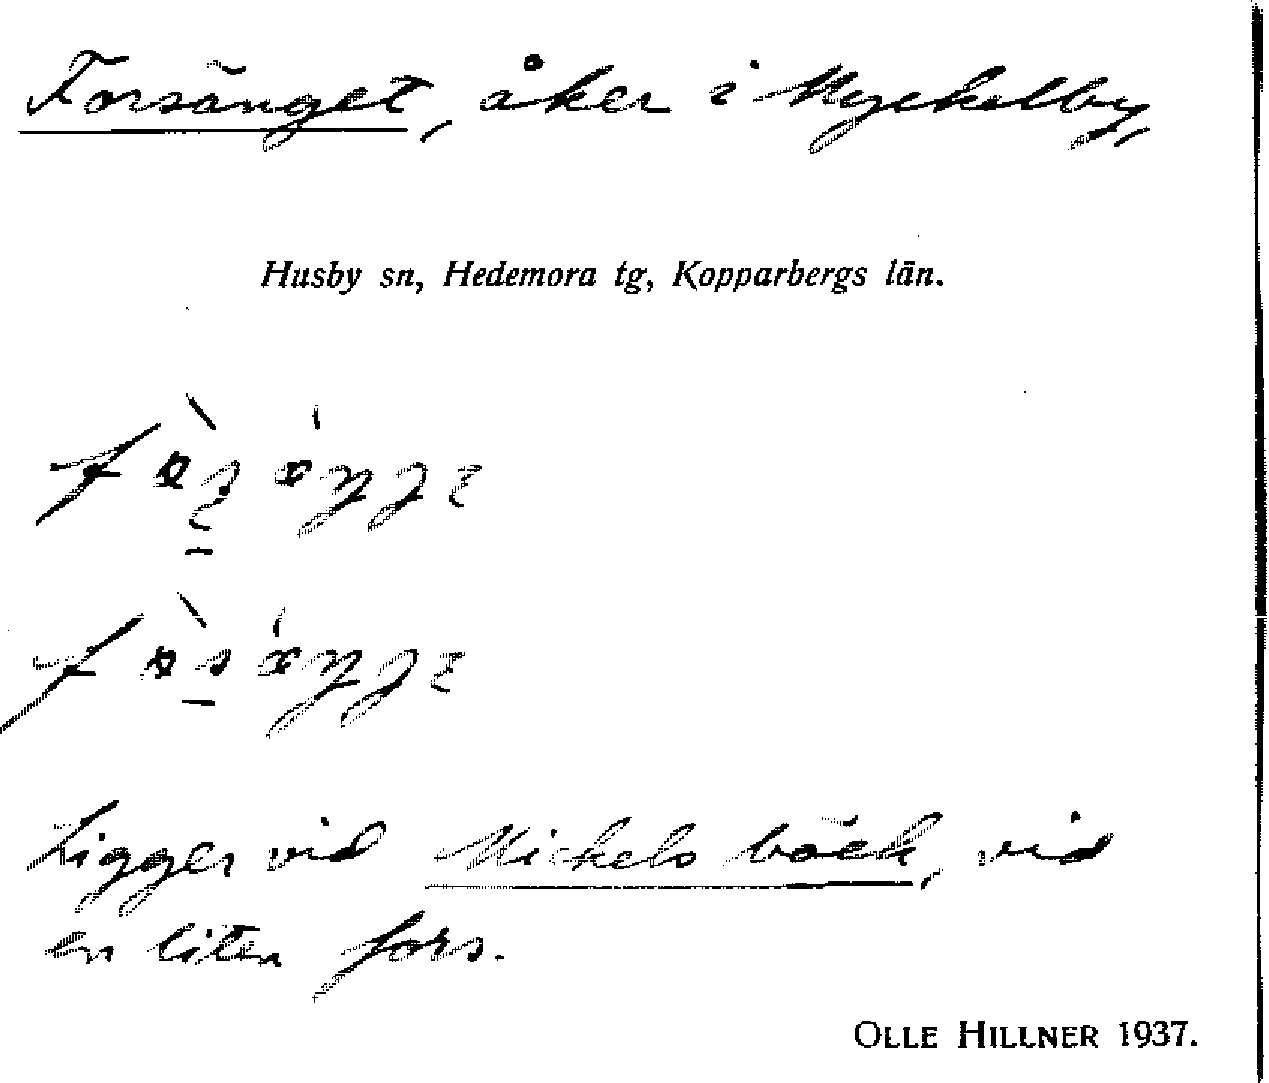 Forsänget, åker i Myckelby,
Husby sn, Hedemora tg, Kopparbergs län.
Ligger vid Mickels bäck, vid
en liten fors.
OLLE HILLNER 1937.